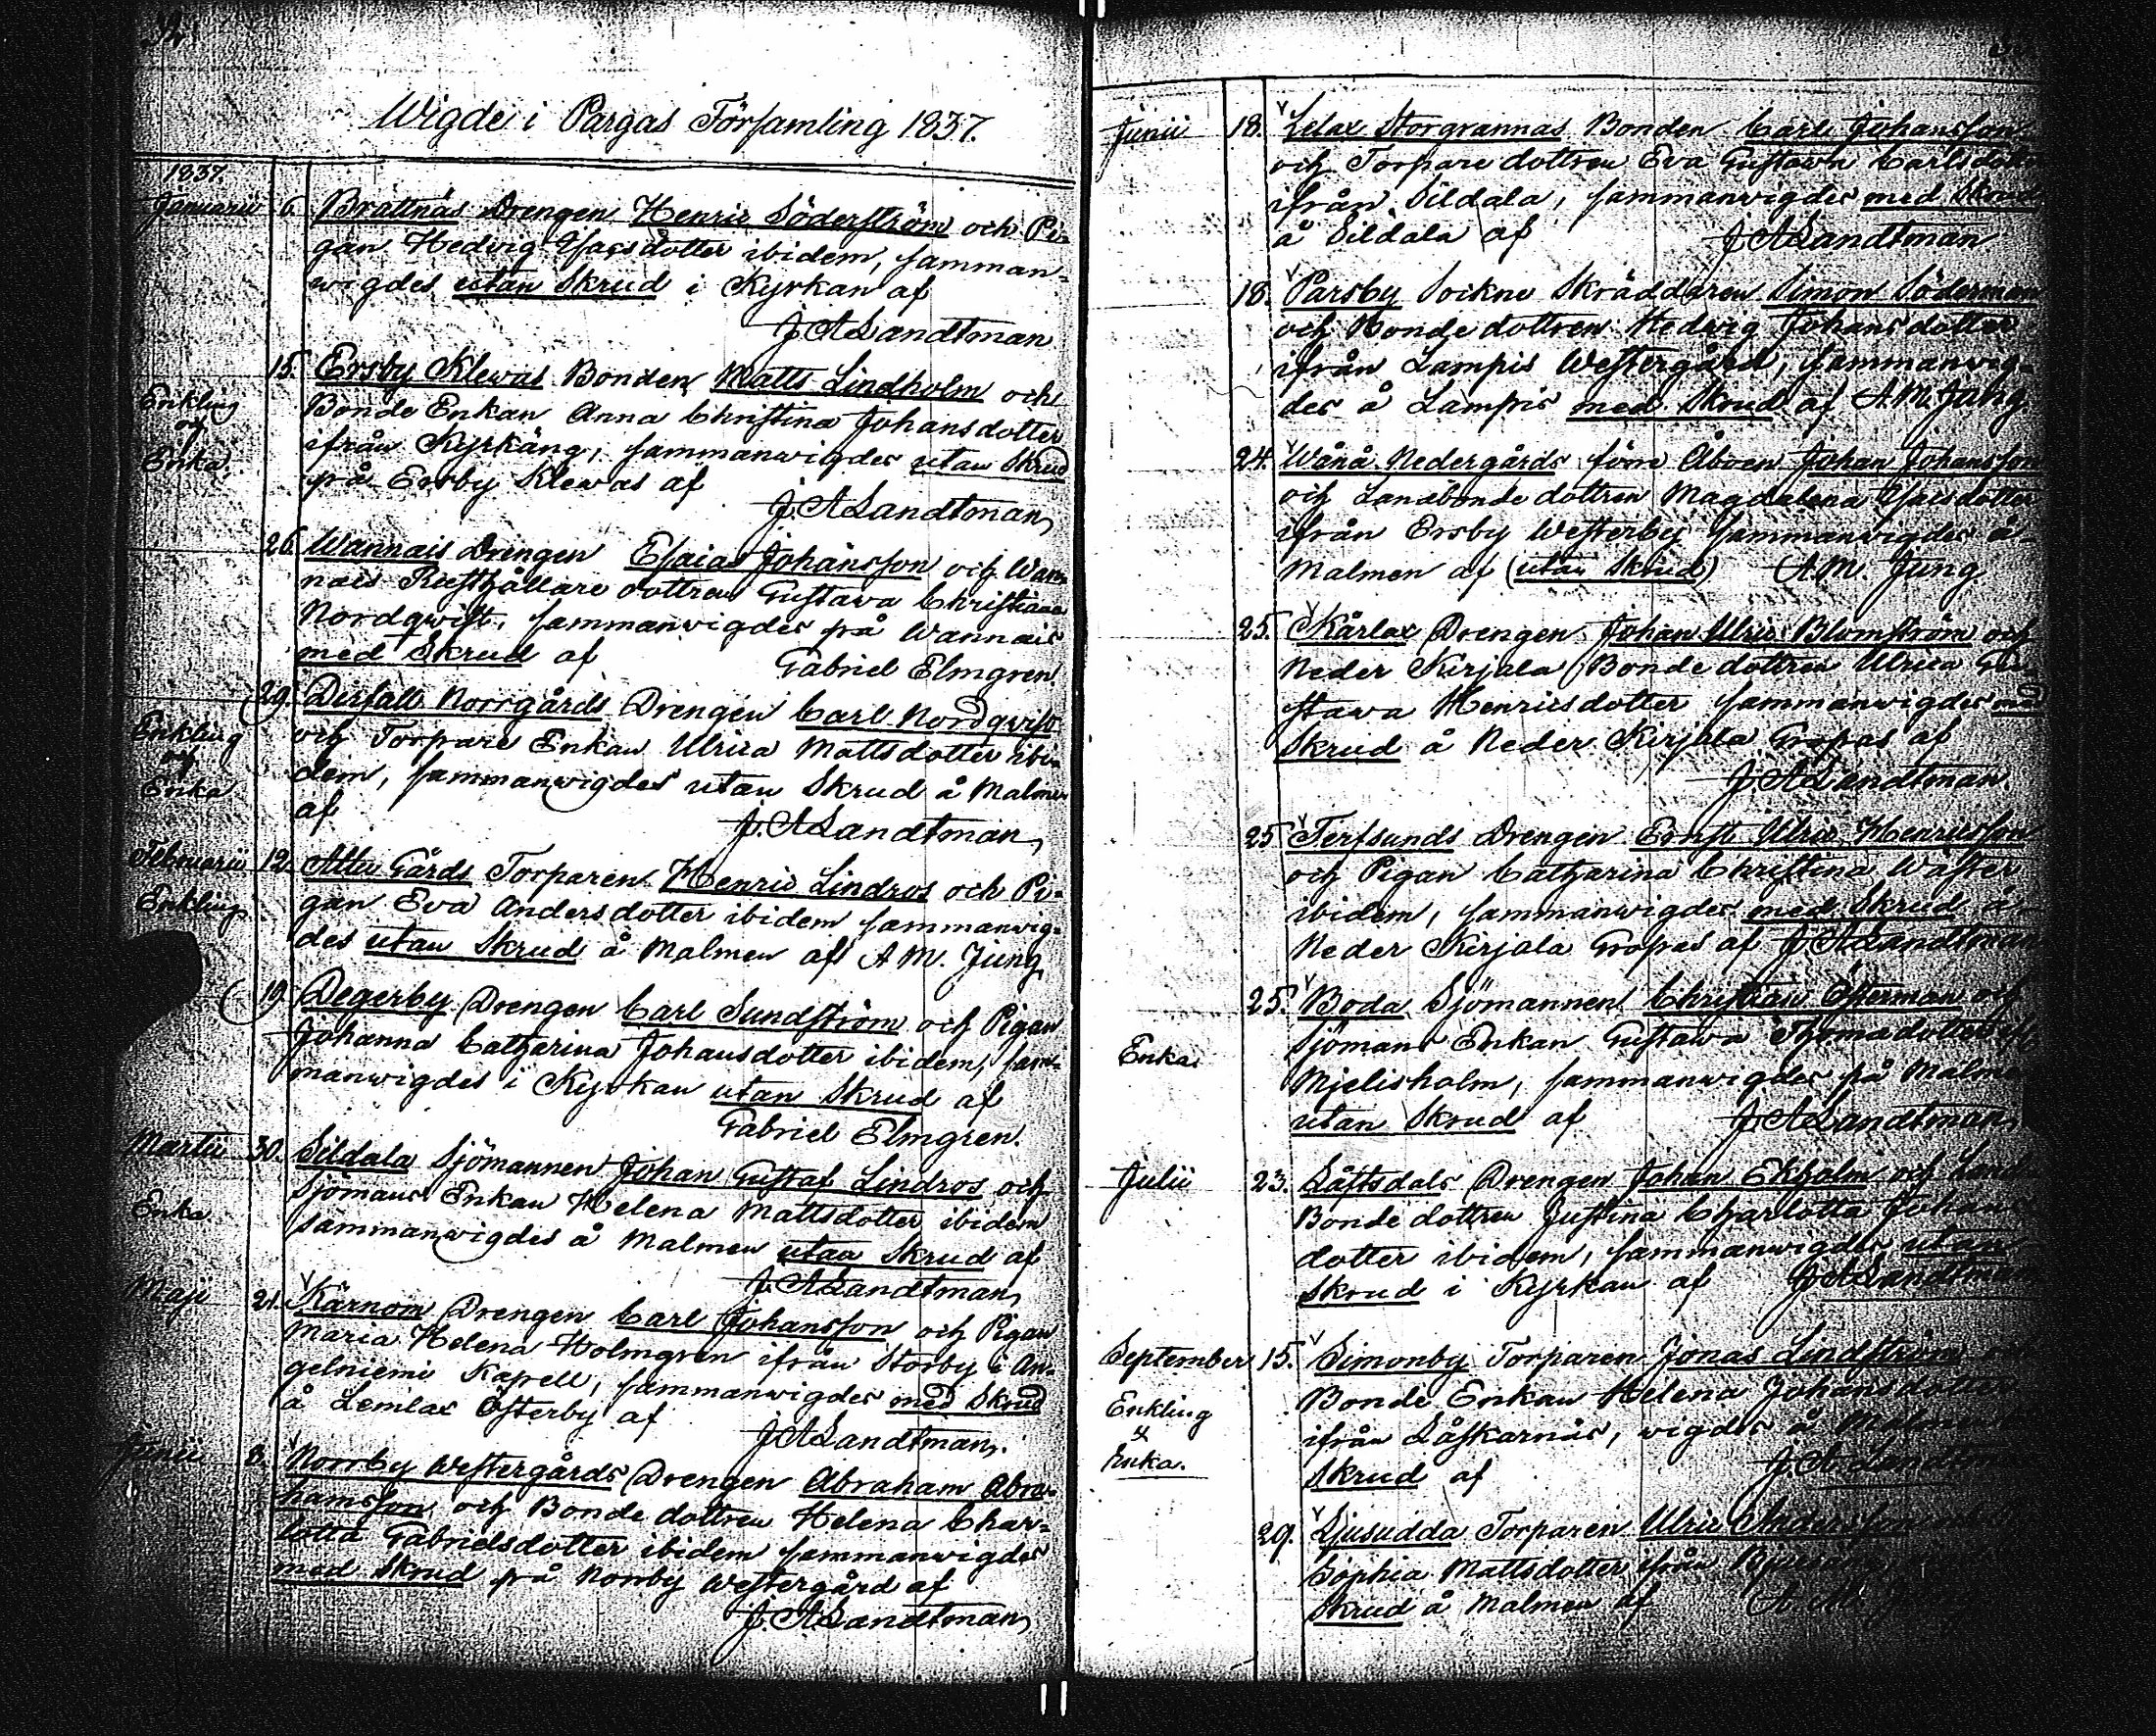 Wigde i Pargas Församling 1837.
1837.
Januarii 6. Brattnäs Drengen Henric Söderström och Pi-
gan Hedvig Esarsdotter ibidem, samman-
wigdes utan Skrud i Kyrkan af
J. A Sandtman
15. Ersby Klewas Bonden Matts Lindholm och
Enkling
och
Enka.
Bonde Enkan Anna Christina Johansdotter
ifrån Kyrkäng, sammanwigdes utan Skrud
på Ersby Klewas af
J. A Sandtman
26. Wannais Drengen Esaias Johansson och Wan-
nais Rusthållare dottren Gustava Christiana
Nordqwist, sammanwigdes på Wannais
med Skrud af Gabriel Elmgren.
29. Norrgårds Drengen Carl Nordqwist
Enkling
och
Enka
och Torpare Enkan Ulrica Mattsdotter ibi-
dem, sammanwigdes utan Skrud å Malmen
af
J. A Sandtman
Februarii 12. Attu Gårds Torparen Henric Lindros och Pi-
Enkling
gan Eva Andersdotter ibidem sammanwig-
des utan Skrud å Malmen af A M. Jung
19. Degerby Drengen Carl Sundström och Pigan
Johanna Catharina Johansdotter ibidem, sam-
manwigdes i Kyrkan utan Skrud af
Gabriel Elmgren.
Martii 30. Sildala Sjömannen Johan Gustaf Lindros och
Enka
Sjömans Enkan Helena Mattsdotter ibidem
sammanwigdes å Malmen utan Skrud af
J. A Sandtman
Maji 21. Kärnom Drengen Carl Johansson och Pigan
Maria Helena Holmgren ifrån Storby i An-
gelniemi Kapell, sammanwigdes med Skrud
å Lemlax Österby af
J. A Sandtman.
Junii 8. Norrby Westergårds Drengen Abraham Abra-
hamsson och Bonde dottren Helena Char-
lotta Gabrielsdotter ibidem sammanwigdes
med Skrud på Norrby Westergård af
J. A Sandtman
Junii 18. Lelax Storgrannas Bonden Carl Johansson
och Torpare dottren Eva Gustava Carlsdotter
ifrån Sildala, sammanwigdes med Skrud
å Sildala af J. A Sandtman
18. Parsby Sockne Skräddaren Simon Söderman
och Bonde dottren Hedwig Johansdotter
ifrån Lampis Westergård, sammanwig-
des å Lampis med Skrud af A. M. Jung
24. Wånå Nedergårds förre Åboen Johan Johansson
och Landbonde dottren Magdalena Esaisdotter
ifrån Ersby Westerby sammanwigdes å
Malmen af (utan Skrud) A. M. Jung
25. Kårlax Drengen Johan Ulric Blomström och
Neder Kirjala Bonde dottren Ulrica Gu-
stava Henricsdotter sammanwigdes med
Skrud å Neder Kirjala Gropas af
J. A Sandtman.
25. Terfsunds Drengen Ernst Ulric Henricsson
och Pigan Catharina Christina Waster
ibidem, sammanwigdes med Skrud å
Neder Kirjala Gropas af J. A Sandtman
25. Boda Sjömannen Christian Österman och
Enka.
Sjömans Enkan Gustawa Thomadotter
Mjelisholm, sammanwigdes på Malmen
utan Skrud af J. A Sandtman
Julii 23. Låftsdals Drengen Johan Ekholm och Land
Bonde dottren Justina Charlotta Johans
dotter ibidem, sammanwigdes utan
Skrud i Kyrkan af J. A Sandtman
September 15. Simonby Torparen Jonas Lindström
Enkling
&
Enka.
Bonde Enkan Helena Johansdotter
ifrån Låskarnäs, wigdes å Malmen
Skrud af J. A. Sandtm
29. Ljusudda Torparen Ulric Andersson
Sophia Mattsdotter ifrån
Skrud å Malmen af A. M.